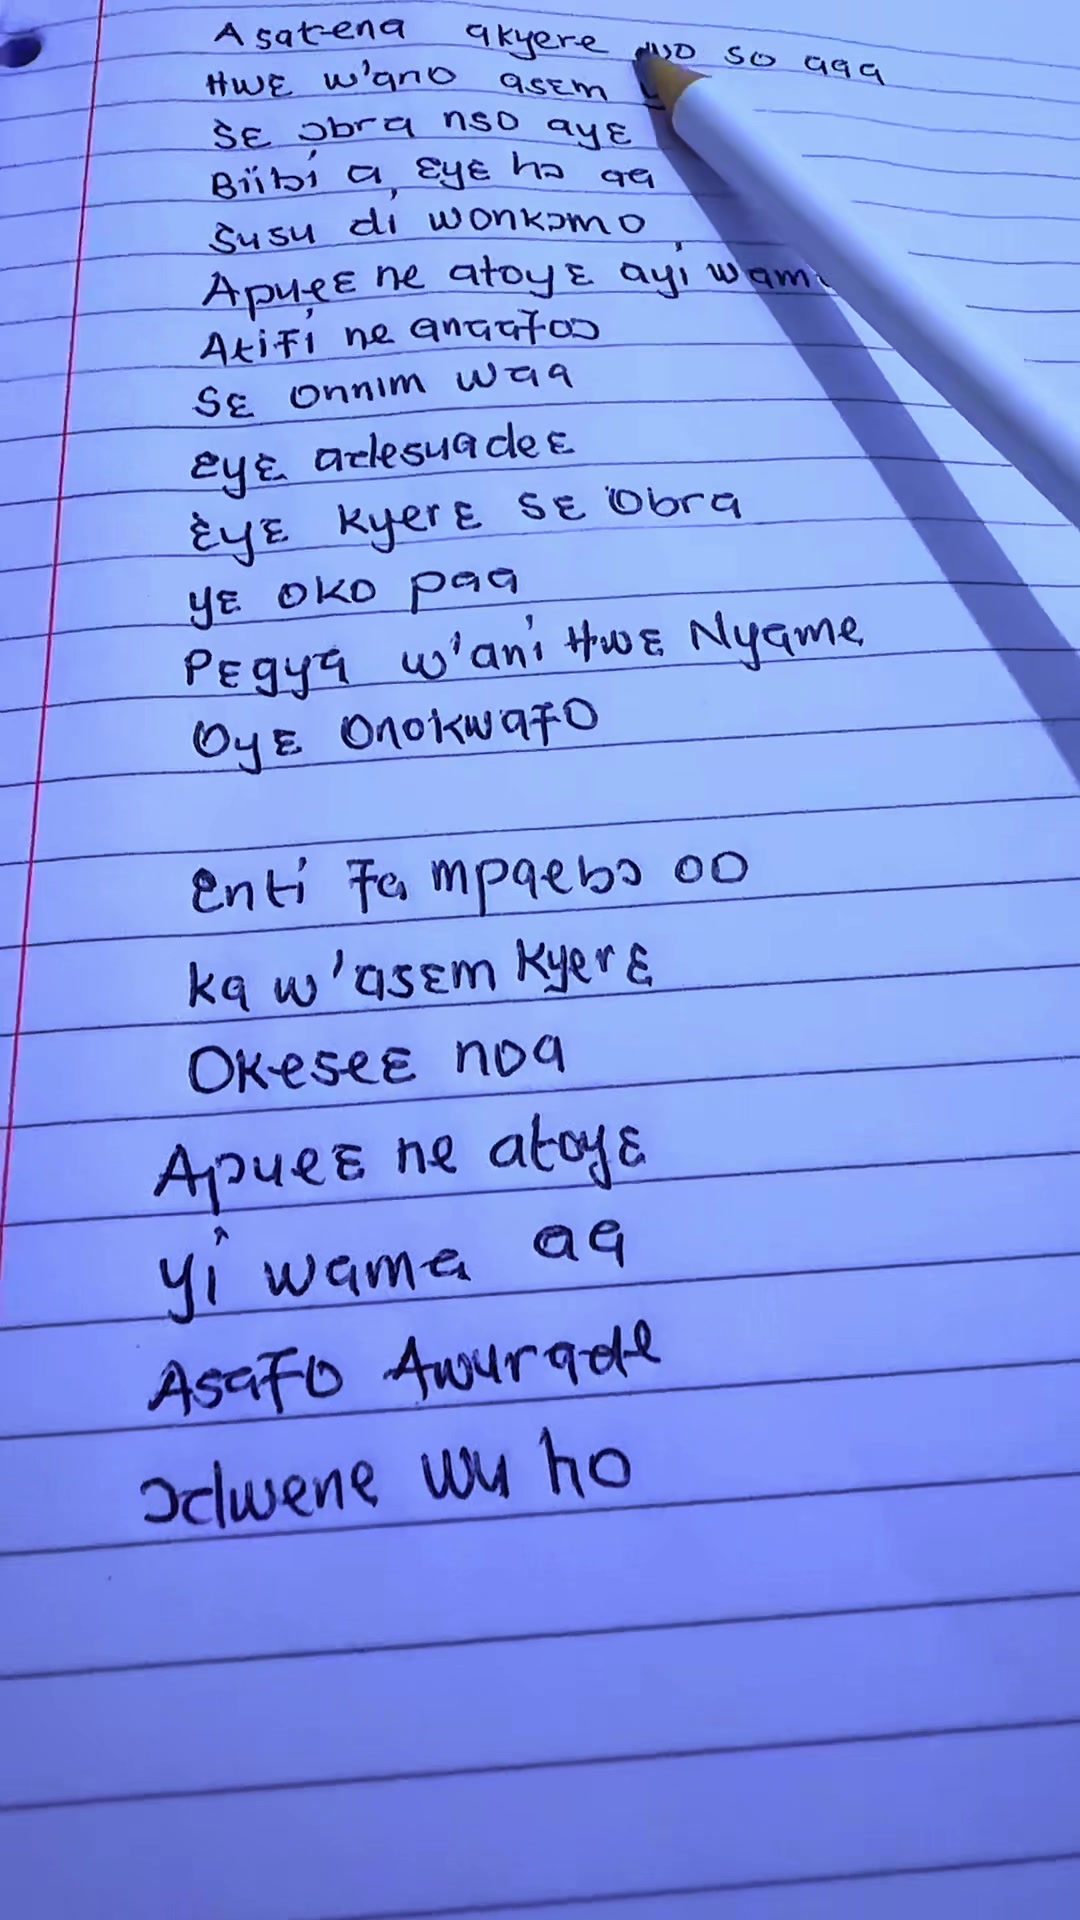 Asatena akyere wo so aaa
Hwɛ w'ano asɛm
Sɛ ɔbra nso ayɛ
Biibi a, ɛyɛ hɔ aa
Susu di wonkɔmo
Apueɛ ne atoyɛ ayi wama
Atifi ne anaafoɔ
Sɛ onnim waa
ɛyɛ adesuadeɛ
ɛyɛ kyerɛ sɛ Obra
yɛ oko paa
Pɛgya w'ani Hwɛ Nyame
Oyɛ Onokwafo
Enti fa mpaebɔ oo
ka w'asɛm kyerɛ
Okeseɛ noa
Apueɛ ne atoyɛ
yi wama aa
Asafo Awurade
ɔdwene wu ho